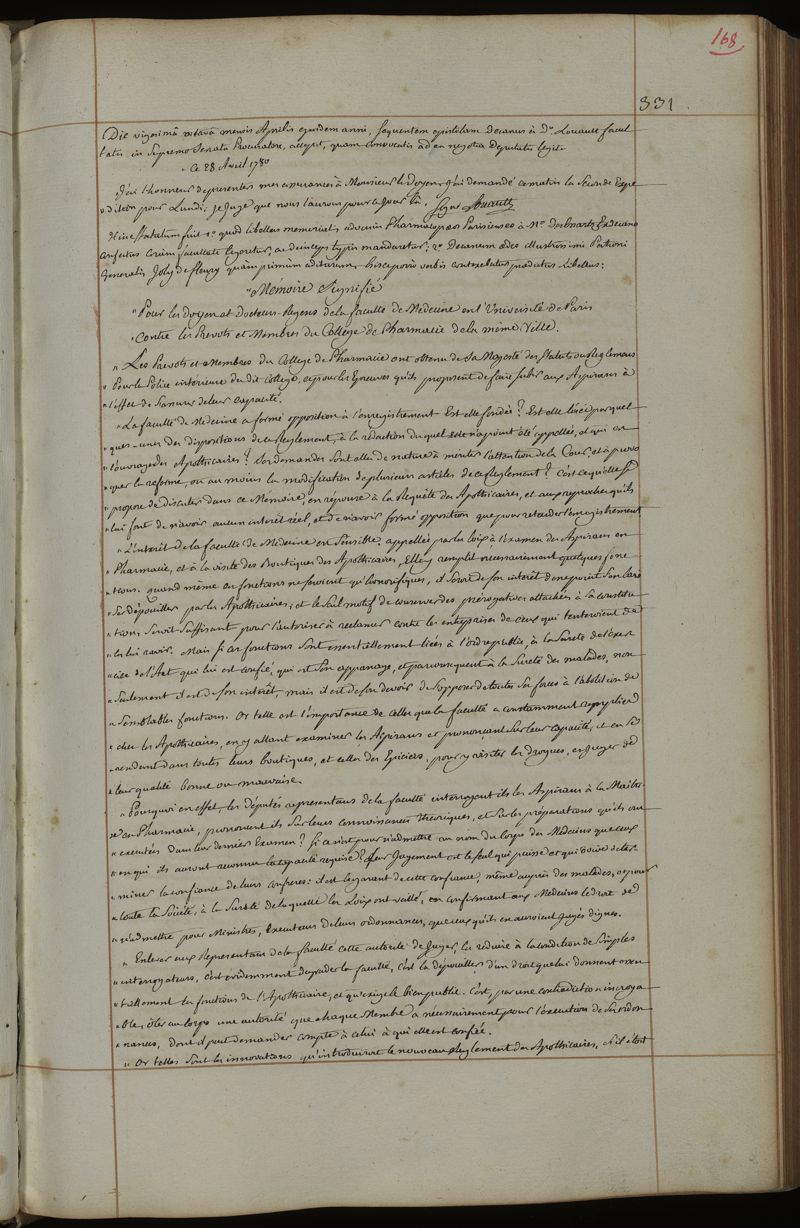 168
331
Die vigesimâ octavâ mensis Aprilis ejusdem anni, sequentem epistolam Decanus à D.° Louault facul
tatis in supremo Senatu Procuratore, accepit, quam convocatis ad ea negotia Deputatis legit.
Ce 28 Avril 1780
J'ai l'honneur de presenter mes assurances à Monsieur le Doyen, j'ai demandé ce matin la seconde Expe
" dition pour Lundi; je juge que nous l'aurons pour ce jour là. signé Louault
Hinc statutum fuit 1.° quod libellus memorialis adversus Pharmacopoeos Parisienses à M.° Desessartz Exdecano
confectus coram facultate legeretur, ac deinceps typis mandaretur, 2.° Decanum ædes illustrissimi Patroni
Generalis Joly de fleury quàm primùm aditurum, hisce porrò verbis contextus prodiit Libellus:
" Mémoire Signifié
" Pour les Doyen et Docteurs-Regens de la faculté de Medecine en l'Université de Paris
" Contre les Prevots et Membres du College de Pharmacie de la même Ville.
" Les Prevots et Membres du College de Pharmacie ont obtenu de Sa Majesté des Statuts ou Reglemens
" Pour la Police interieure du dit College, et pour les Epreuves qu'ils proposent de faire subir aux Aspirans à
" l'effet de s'assurer de leur capacité.
" La faculté de Medecine a formé opposition à l'enregistrement. Est-elle fondée? Est-elle lésée par quel
" ques-unes des dispositions de ce Reglement, à la rédaction duquel elle n'a point été appellée, et qui est
" l'ouvrage des Apothicaires? Ses demandes sont-elles de nature à mériter l'attention de la Cour, et à provo
" quer la reforme, ou au moins la modification de plusieurs articles de ce Reglement? C'est ce qu'elle se
" propose de discuter dans ce Mémoire, en réponse à la Requête des Apothicaires, et aux reproches qu'ils
" lui font de n'avoir aucun interêt réel, et de n'avoir formé opposition que pour retarder l'enregistrement.
" L'interêt de la faculté de Medecine est sensible; appellée par les loix à l'examen des Aspirans en
" Pharmacie, et à la visite des Boutiques des Apothicaires, Elle y remplit necessairement quelques fonc
" tions. quand même ces fonctions ne seroient qu'honorifiques, il seroit de son interêt de ne point s'en laisser
" dépouiller par les Apothicaires; et le seul motif de conserver des prérogatives attachées à sa constitu
" tion, seroit suffisant pour l'autoriser à reclamer contre les entreprises de ceux qui tenteroient de
" les lui ravir. Mais si ces fonctions sont essentiellement liées à l'ordre public, à la sureté de l'exer
" cice de l'Art qui lui est confié, qui est son appanage, et par consequent à la sureté des malades, non
" seulement il est de son interêt, mais il est de son devoir de s'opposer de toutes ses forces à l'abolition de
" semblables fonctions. Or telle est l'importance de celles que la faculté a constamment remplies
" chez les Apothicaires, en y allant examiner les Aspirans et prononçant sur leur capacité, et en se
" rendant dans toutes leurs boutiques, et celles des Epiciers, pour y visiter les drogues, et juger de
" leur qualité bonne ou mauvaise.
" Pourquoi en effet, les députés representans de la faculté interrogent ils les Aspirans à la Maitri
" se en Pharmacie, prononcent ils sur leurs connoissances théoriques, et sur les préparations qu'ils ont
" executées dans leur dernier Examen? si ce n'est pour n'admettre au nom du corps des Medecins que ceux
" en qui ils auront reconnu la capacité requise? Leur Jugement est le seul qui puisse et qui doive deter
" miner la confiance de leurs confreres: il est le garant de cette confiance, même auprès des malades, et pour
" toute la Société, à la sureté de laquelle les Loix ont veillé, en confirmant aux Medecins le droit de
" n'admettre pour Ministres, Executeurs de leurs ordonnances, que ceux qu'ils en auroient jugés dignes.
" Enlever aux Representans de la faculté cette autorité de Juges, les reduire à la condition de simples
" interrogateurs, c'est evidemment degrader la faculté, c'est la dépouiller d'un droit que lui donnent essen
" tiellement les fonctions de l'Apothicaire, et qu'exige le bien public. C'est, par une contradiction incroya
" ble, ôter au corps une autorité que chaque Membre a necessairement pour l'execution de ses ordon
" nances, dont il peut demander compte à celui à qui elle est confiée.
" Or telles sont les innovations qu'introduiroit le nouveau Reglement des Apothicaires, s'il étoit